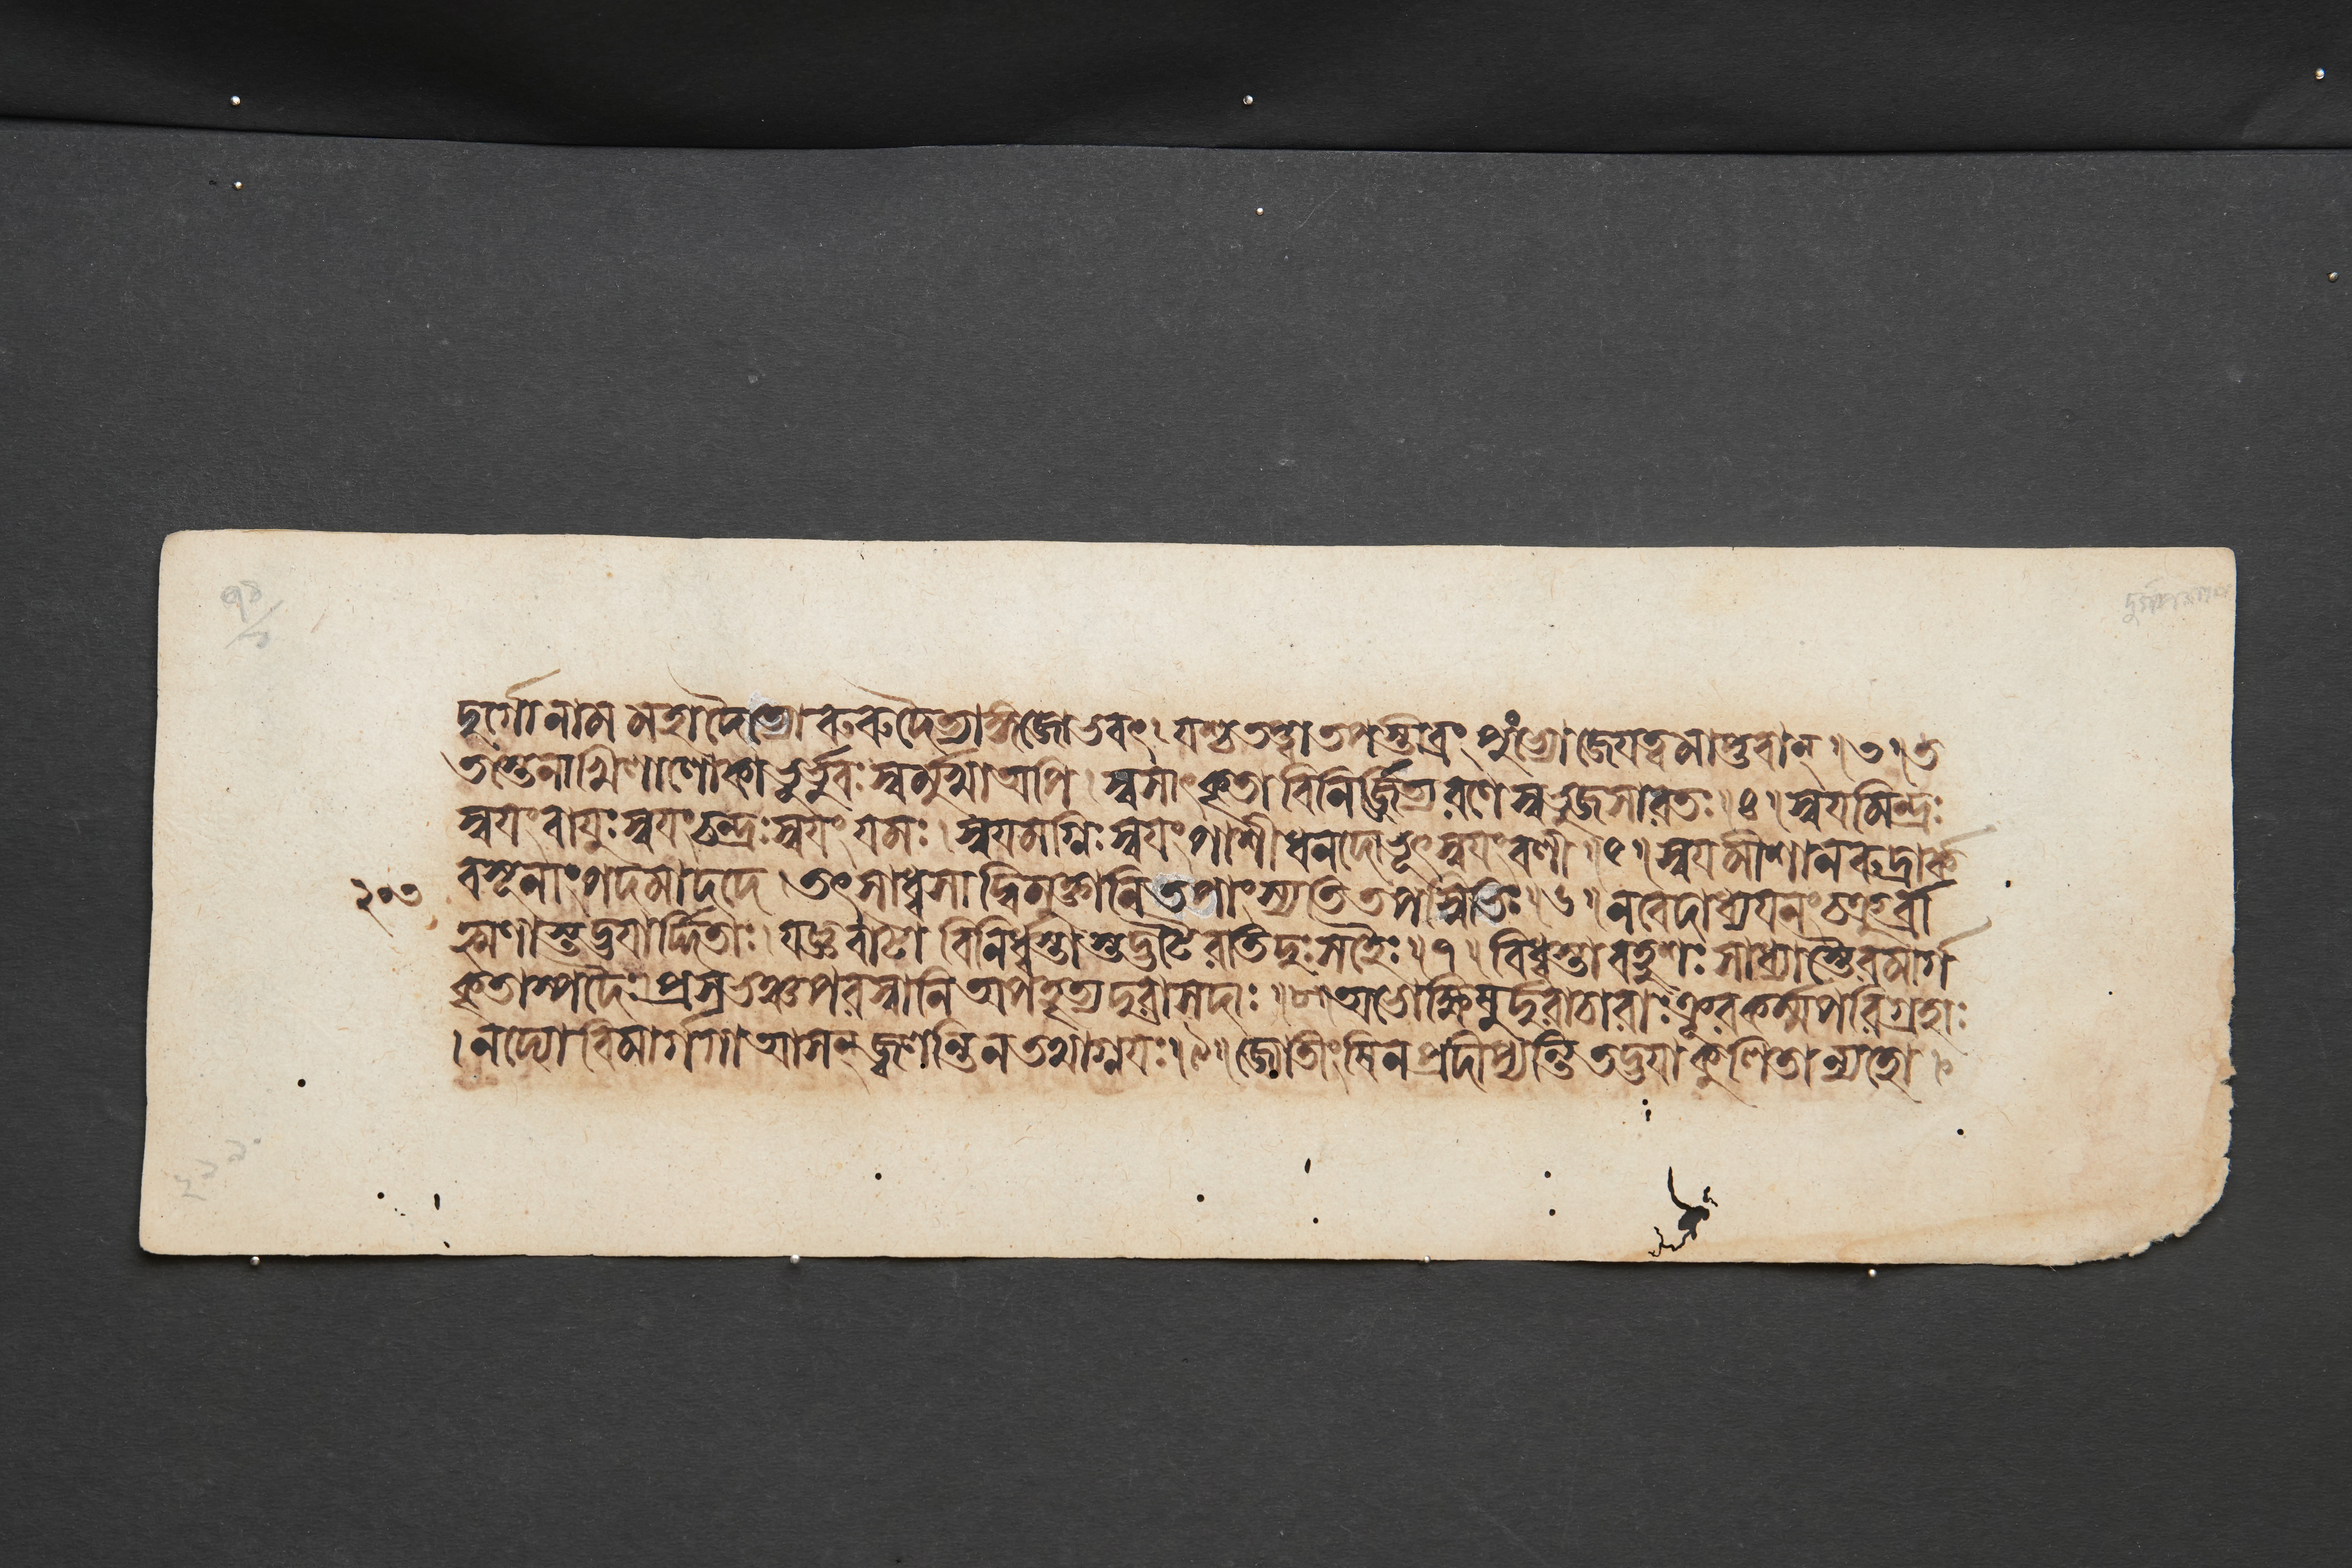 দুর্গো নাম মহাদৈত্যো রুরুদৈত্যাঙ্গজোভবৎ। যশ্চ তপ্ত্বা তপস্তীব্রং পুংভ্যোজেযত্বমাপ্তবান্॥৩॥ত
তস্তেনাখিলালোকা ভূর্ভুবঃস্বর্মুখাঅপি। স্বসাৎকৃতা বিনির্জিত্য রণে স্বভুজসারতঃ॥৪॥স্বযমিন্দ্রঃ
স্বযং বাযুঃ স্বযং চন্দ্রঃ স্বযং যমঃ। স্বযমগ্নিঃ স্বযং পাশী ধনদোভূৎ স্বযং বলী॥৫॥স্বযমীশানরুদ্রার্ক
২০৩ বসূনাং পদমাদদে। তৎসাধ্বসাদ্বিমুক্তানি তপাংস্যতি তপস্বিভিঃ॥৬॥ন বেদাধ্যযনং চক্রুর্ব্রা
হ্মণাস্তদ্ভযার্দ্দিতাঃ। যজ্ঞবাটা বিনির্ধ্বস্তাস্তদ্ভটৈরতিদুঃসহৈঃ॥৭॥বিধ্বস্তা বহুশঃ সাধ্ব্যস্তৈরমার্গ
কৃতাস্পদৈঃ। প্রসভঞ্চ পরস্বানি অপহৃত্য দুরাসদাঃ॥৮॥অভোক্ষিষুর্দুরাচারাঃ ক্রূরকর্ম্মপরিগ্রহাঃ
।নদ্যো বিমার্গগা আসন্ জ্বলন্তি ন তথাগ্নযঃ॥৯॥জ্যোতীংষি ন প্রদীপ্যন্তি তদ্ভযাকুলিতান্যহো।